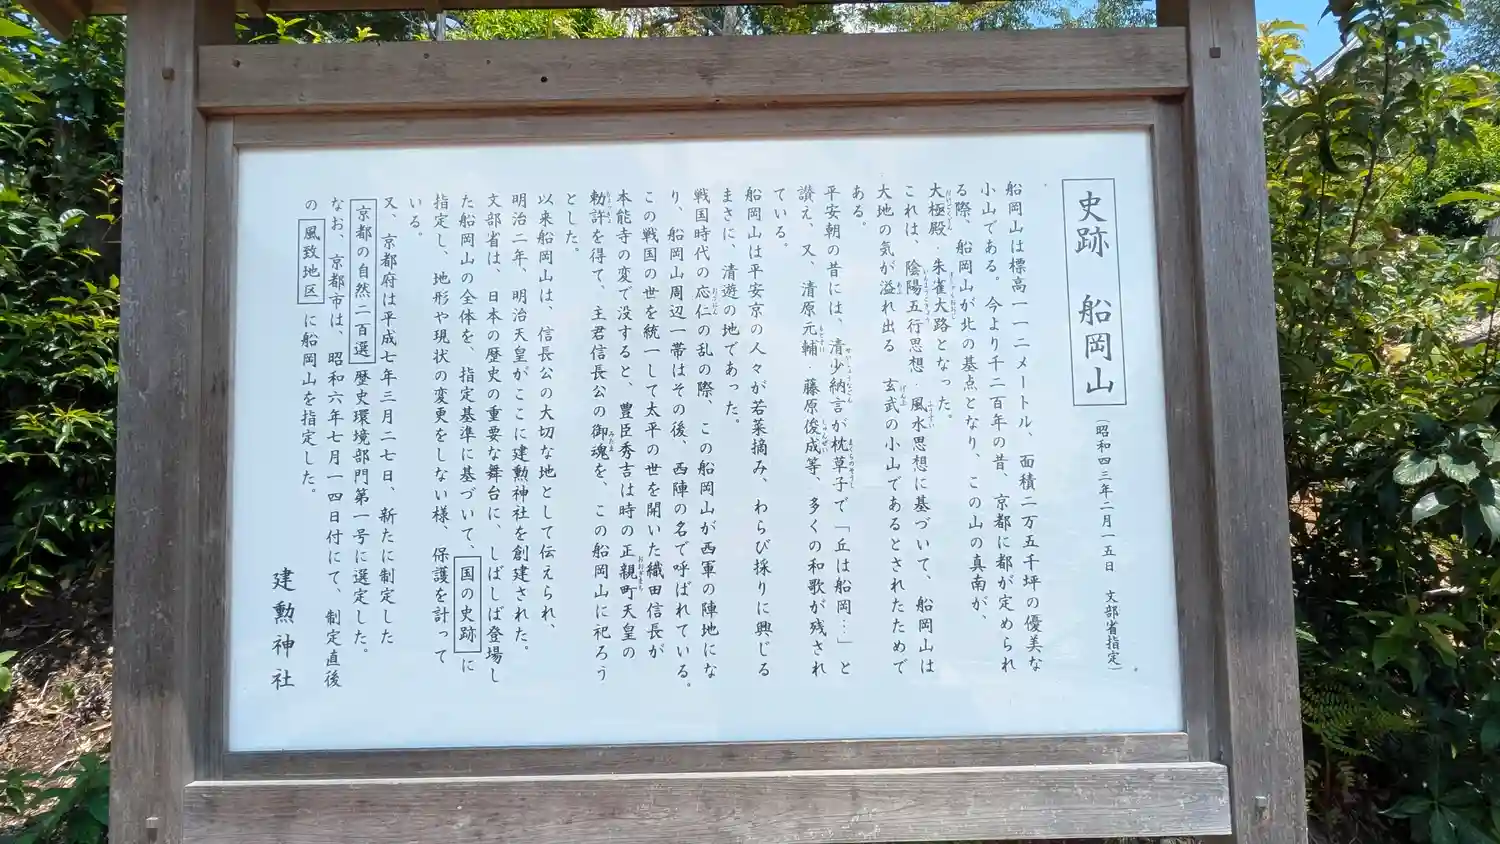 史跡 船岡山 (昭和四三年二月一五日 文部省指定)
船岡山は標高一一二メートル、面積二万五千坪の優美な
小山である。今より千二百年の昔、京都に都が定められ
る際、船岡山が北の基点となり、この山の真南が、
大極殿・朱雀大路となった。
これは、陰陽五行思想・風水思想に基づいて、船岡山は
大地の気が溢れ出る 玄武の小山であるとされたためで
ある。
平安朝の昔には、清少納言が枕草子で「丘は船岡…」と
讃え、又、清原元輔・藤原俊成等、多くの和歌が残され
ている。
船岡山は平安京の人々が若菜摘み、わらび採りに興じる
まさに、清遊の地であった。
戦国時代の応仁の乱の際、この船岡山が西軍の陣地にな
り、船岡山周辺一帯はその後、西陣の名で呼ばれている。
この戦国の世を統一して太平の世を開いた織田信長が
本能寺の変で没すると、豊臣秀吉は時の正親町天皇の
勅許を得て、主君信長公の御魂を、この船岡山に祀ろう
とした。
以来船岡山は、信長公の大切な地として伝えられ、
明治二年、明治天皇がここに建勲神社を創建された。
文部省は、日本の歴史の重要な舞台に、しばしば登場し
た船岡山の全体を、指定基準に基づいて、国の史跡に
指定し、地形や現状の変更をしない様、保護を計って
いる。
又、京都府は平成七年三月二七日、新たに制定した
京都の自然二百選 歴史環境部門第一号に選定した。
なお、京都市は、昭和六年七月一四日付にて、制定直後
の 風致地区 に船岡山を指定した。
建勲神社